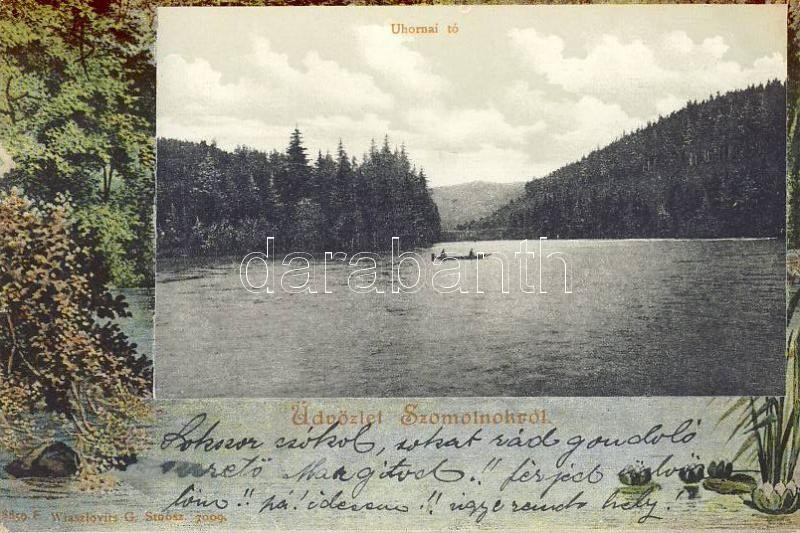 Uhornai tó
darabanth
Üdvözlet Szomolnokról.
Sokszor csókol, sokat rád gondoló
szerető Margitod!! férjed üdvöz
löm!! pá! édesem!! ugye rendes hely!
8859 F. Wlaszlovits G. Stoósz. 7009.